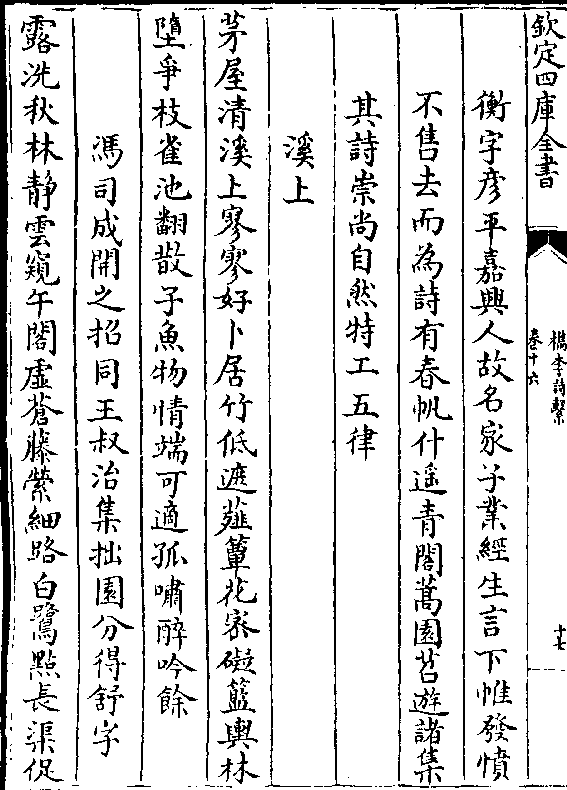 欽定四庫全書
檇李詩繫
卷十六
十七
衡字彦平嘉興人故名家子業經生言下帷發憤
不售去而為詩有春帆什遥青閣蒿園苕遊諸集
其詩崇尚自然特工五律
溪上
茅屋清溪上寥寥好卜居竹低遮薤簟花宻礙籃輿林
墮爭枝雀池翻散子魚物情端可適孤嘯醉吟餘
馮司成開之招同王叔冶集拙園分得舒字
露洗秋林静雲窺午閣虛蒼藤縈細路白鷺㸃長渠促